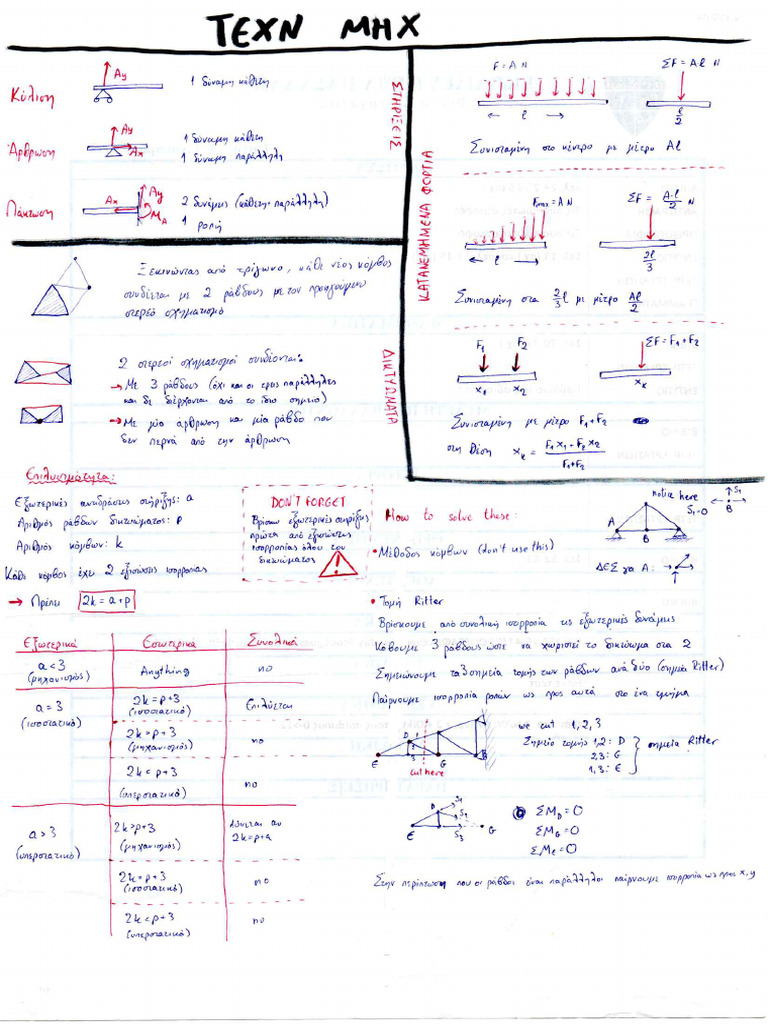 ΤΕΧΝ ΜΗΧ
Κύλιση
Ay
1 δύναμη κάθετη
Άρθρωση
Ay
Ax
1 δύναμη κάθετη
1 δύναμη παράλληλη
Πάκτωση
Ax
Ay
MA
2 δυνάμεις (κάθετη+παράλληλη)
1 ροπή
ΣΤΗΡΙΞΕΙΣ
ΚΑΤΑΝΕΜΗΜΕΝΑ ΦΟΡΤΙΑ
F = A N
l
ΣF = Al N
l/2
Συνισταμένη στο κέντρο με μέτρο Al
Fmax = A N
l
ΣF = A·l/2 N
2l/3
Συνισταμένη στα 2/3 l με μέτρο Al/2
F1
F2
x1
x2
ΣF = F1+F2
xk
Συνισταμένη με μέτρο F1+F2
στη θέση xk = F1x1+F2x2/F1+F2
ΔΙΚΤΥΩΜΑΤΑ
Ξεκινώντας από τρίγωνο, κάθε νέος κόμβος
συνδέεται με 2 ράβδους με τον προηγούμενο
στερεό σχηματισμό
2 στερεοί σχηματισμοί συνδέονται:
→ Με 3 ράβδους (όχι και οι τρεις παράλληλες
και δε διέρχονται από το ίδιο σημείο)
→ Με μία άρθρωση και μία ράβδο που
δεν περνά από την άρθρωση
Επιλυσιμότητα:
Εξωτερικές αντιδράσεις στήριξης: a
Αριθμός ράβδων δικτυώματος: ρ
Αριθμός κόμβων: k
Κάθε κόμβος έχει 2 εξισώσεις ισορροπίας
→ Πρέπει 2k = a+ρ
DON'T FORGET
Βρίσκω εξωτερικές στηρίξεις
πρώτα από εξισώσεις
ισορροπίας όλου του
δικτυώματος
!
Εξωτερικά
Εσωτερικά
Συνολικά
a<3
(μηχανισμός)
Anything
no
a=3
(ισοστατικό)
2k=ρ+3
(ισοστατικό)
Επιλύεται
2k>ρ+3
(μηχανισμός)
no
2k<ρ+3
(υπερστατικό)
no
a>3
(υπερστατικό)
2k>ρ+3
(μηχανισμός)
Λύνεται αν
2k=ρ+a
2k=ρ+3
(ισοστατικό)
no
2k<ρ+3
(υπερστατικό)
no
How to solve these:
notice here
S1
S1=0
B
A
B
• Μέθοδος κόμβων (don't use this)
ΔΕΣ για A:
• Τομή Ritter
Βρίσκουμε από συνολική ισορροπία τις εξωτερικές δυνάμεις
Κόβουμε 3 ράβδους ώστε να χωριστεί το δικτύωμα στα 2
Σημειώνουμε τα 3 σημεία τομής των ράβδων ανά δύο (σημεία Ritter)
Παίρνουμε ισορροπία ροπών ως προς αυτά στο ένα τμήμα
D
1
2
3
E
G
B
cut here
we cut 1,2,3
Σημείο τομής 1,2: D
2,3: G
1,3: E
σημεία Ritter
E
D
S1
S2
S3
G
ΣMD=0
ΣMG=0
ΣME=0
Στην περίπτωση που οι ράβδοι είναι παράλληλοι παίρνουμε ισορροπία ως προς x,y